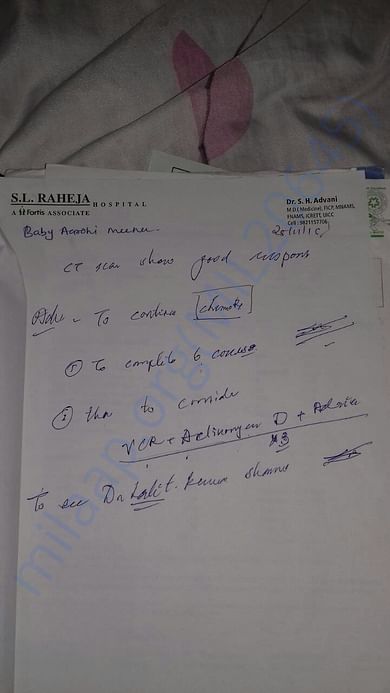 S.L. RAHEJA HOSPITAL
A Fortis ASSOCIATE
Dr. S. H. Advani
M.D.( Medicine), FICP, MNAMS,
FNAMS, ICRETT, UICC
Cell : 9821157706
Baby Aarohi
CT scan show good respons
Adv - To continue
① To complete 6 courses
② then to consider
VCR + Actinomycin D + Adria
x3
To see Dr Lalit. Kumar Sharma
milaap.org